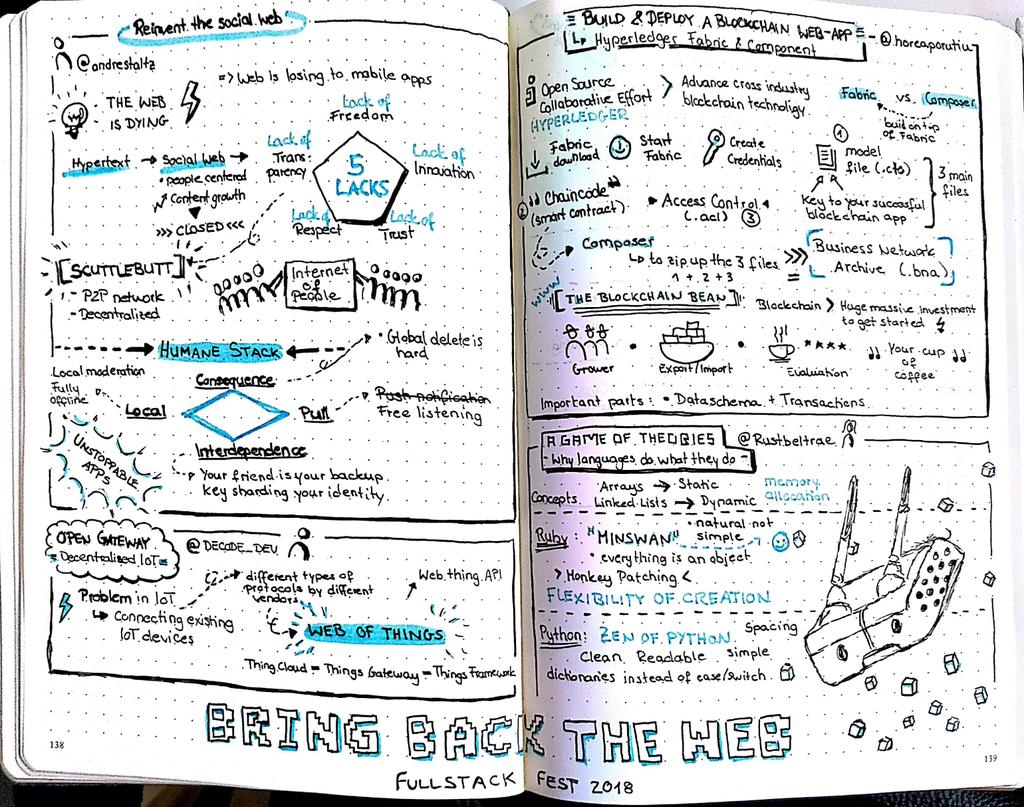 Reinvent the social web
@andrestaltz
=> Web is losing to mobile apps
THE WEB
IS DYING
Hypertext → Social Web →
• people centered
Content growth
>>> CLOSED <<<
5
LACKS
Lack of
Freedom
Lack of
Trans-
parency
Lack of
Innovation
Lack of
Respect
Lack of
Trust
[SCUTTLEBUTT]
- P2P network
- Decentralized
Internet
of
People
HUMANE STACK
• Global delete is
hard
Local moderation
Fully
offline
Consequence
Local
Pull
Push notification
Free listening
Interdependence
UNSTOPPABLE
APPS
• Your friend is your backup
Key sharding your identity
OPEN GATEWAY
= Decentralised IoT =
@DECODE_DEV
Problem in IoT
↳ Connecting existing
IoT devices
• different types of
protocols by different
vendors
Web.thing.API
WEB OF THINGS
Thing.Cloud — Things Gateway — Things Framework
BUILD & DEPLOY A BLOCKCHAIN WEB-APP
↳ Hyperledger Fabric & Component
@horeaporutiu
Open Source
Collaborative Effort
HYPERLEDGER
> Advance cross industry
blockchain technology
Fabric vs. Composer
build on top
of Fabric
Fabric
download
Start
Fabric
Create
Credentials
1
model
file (.cto)
3 main
files
Key to your successful
blockchain app
2 Chaincode
(smart contract)
• Access Control •
(.acl) 3
Composer
↳ to zip up the 3 files >>>
1 + 2 + 3
Business Network
Archive (.bna)
www
[THE BLOCKCHAIN BEAN]
Blockchain > Huge massive investment
to get started
Grower
Export/Import
Evaluation
Your cup
of
coffee
Important parts: • Dataschema + Transactions
A GAME OF THEORIES
- Why languages do what they do -
@Rustbeltrae
Concepts
Arrays → Static
Linked Lists → Dynamic
memory
allocation
Ruby: "MINSWAN"
• natural not
simple
• everything is an object
> Monkey Patching <
FLEXIBILITY OF CREATION
Python: ZEN OF PYTHON
Spacing
Clean Readable simple
dictionaries instead of case/switch
BRING BACK THE WEB
138
139
FULLSTACK FEST 2018